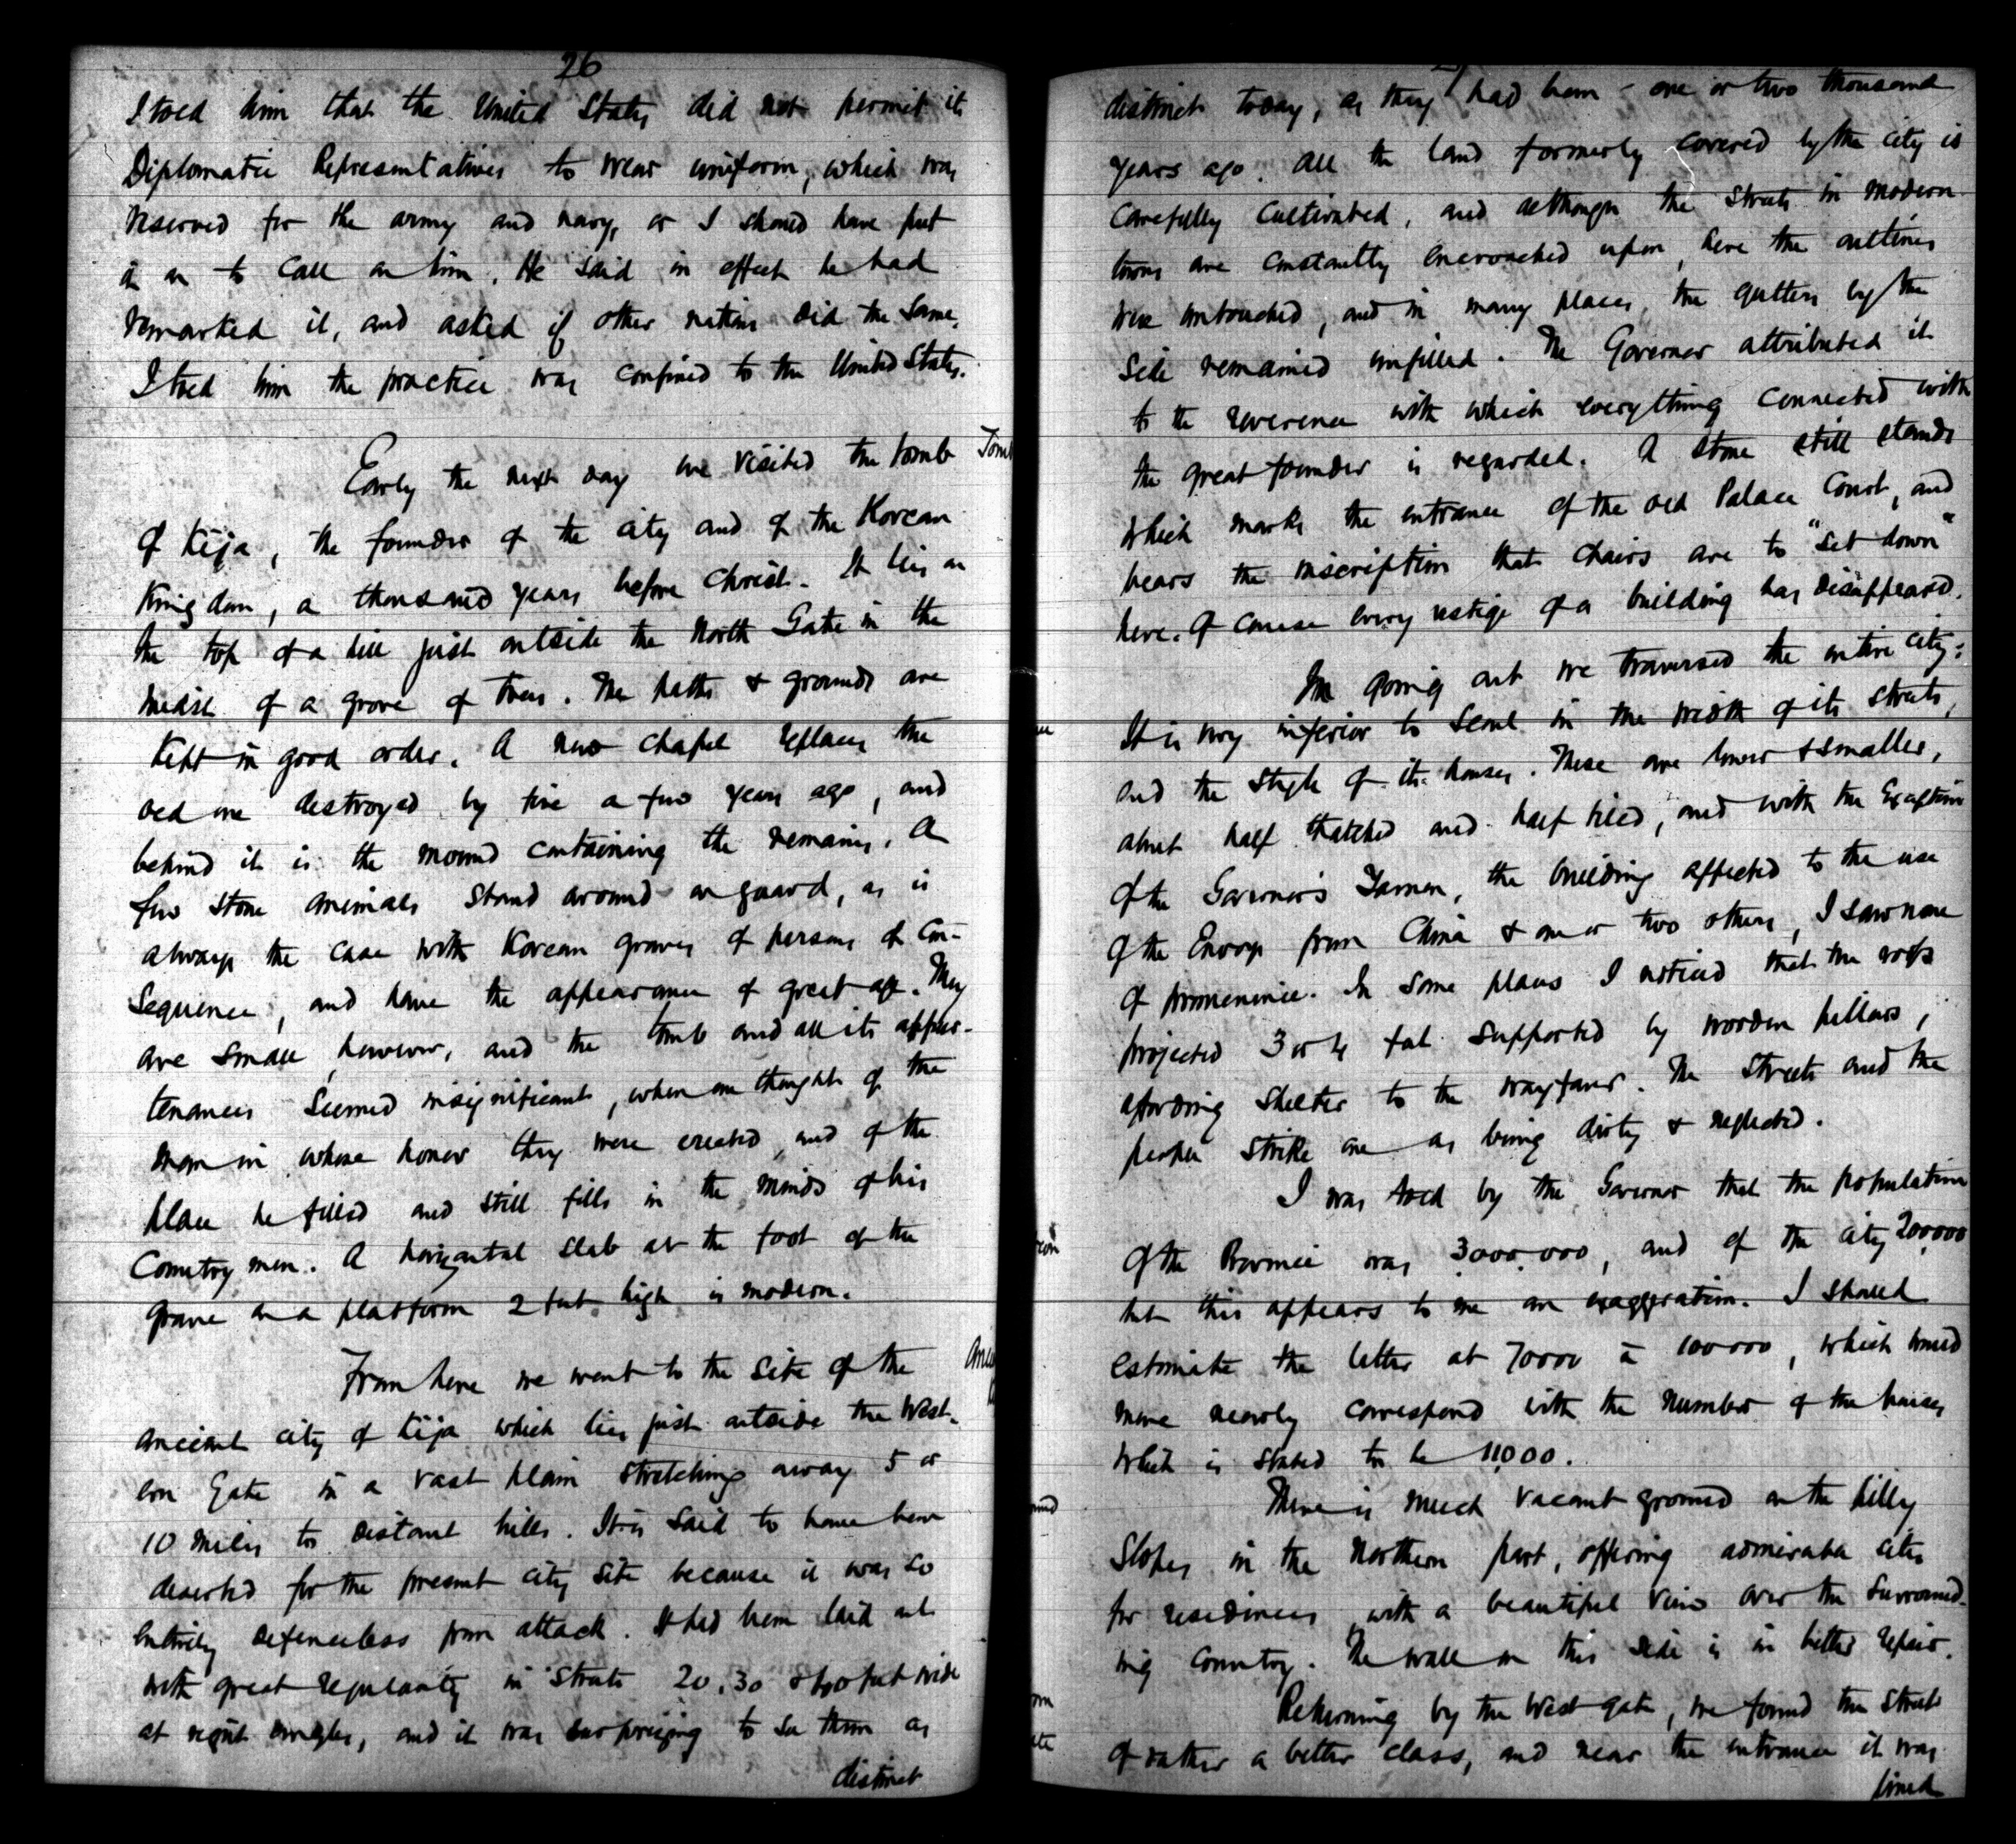 26
I told him that the United States did not permit its
Diplomatic Representatives to wear uniform, which was
reserved for the army and navy, or I should have put
it on to call on him. He said in effect he had
remarked it, and asked if other nations did the same.
I told him the practice was confined to the United States.
Early the next day we visited the tomb
of Kija, the founder of the city and of the Korean
Kingdom, a thousand years before Christ. It lies on
the top of a hill just outside the North Gate in the
midst of a grove of trees. The paths & grounds are
kept in good order. A new chapel replaces the
old one destroyed by fire a few years ago, and
behind it is the mound containing the remains. A
few stone animals stand around on guard, as is
always the case with Korean graves of persons of con-
sequence, and have the appearance of great age. They
are small however, and the tomb and all its appur-
tenances seemed insignificant, when one thought of the
man in whose honor they were erected, and of the
place he filled and still fills in the minds of his
Country men. A horizontal slab at the foot of the
grave on a platform 2 feet high is modern.
From here we went to the site of the
ancient city of Kija which lies just outside the West-
ern Gate in a vast plain stretching away 5 or
10 miles to distant hills. It is said to have been
deserted for the present city site because it was so
entirely defenceless from attack. It had been laid out
with great regularity in streets 20, 30 & feet wide
at right angles, and it was surprising to see them as
distinct
distinct today, as they had been - one or two thousand
years ago. All the land formerly covered by the city is
carefully cultivated, and although the streets in modern
towns are constantly encroached upon, here the outlines
were untouched, and in many places, the gutters by the
side remained unfilled. The Governor attributed it
to the reverence with which everything connected with
the great founder is regarded. A stone still stands
which marks the entrance of the old Palace Court, and
bears the inscription that chairs are to "set down"
here. Of course every vestige of a building has disappeared.
In going out we traversed the entire city:
It is very inferior to Seoul in the width of its streets,
and the style of its houses. These are lower & smaller,
about half thatched and half tiled, and with the exception
of the Governor's Yamen, the building affected to the use
of the Envoy from China & one or two others, I saw none
of prominence. In some places I noticed that the roofs
projected 3 or 4 feet supported by wooden pillars,
affording shelter to the wayfarer. The streets and the
people strike one as being dirty & neglected.
I was told by the Governor that the population
of the Province was 3,000,000, and of the city 200,000
but this appears to me an exaggeration. I should
estimate the latter at 70000 à 100000, which would
more nearly correspond with the number of the houses
which is stated to be 11,000.
There is much vacant ground on the hilly
slopes in the Northern part, offering admirable sites
for residences with a beautiful view over the surround-
ing country. The wall on this side is in better repair.
Returning by the West gate, we found the streets
of rather a better class, and near the entrance it was
lined